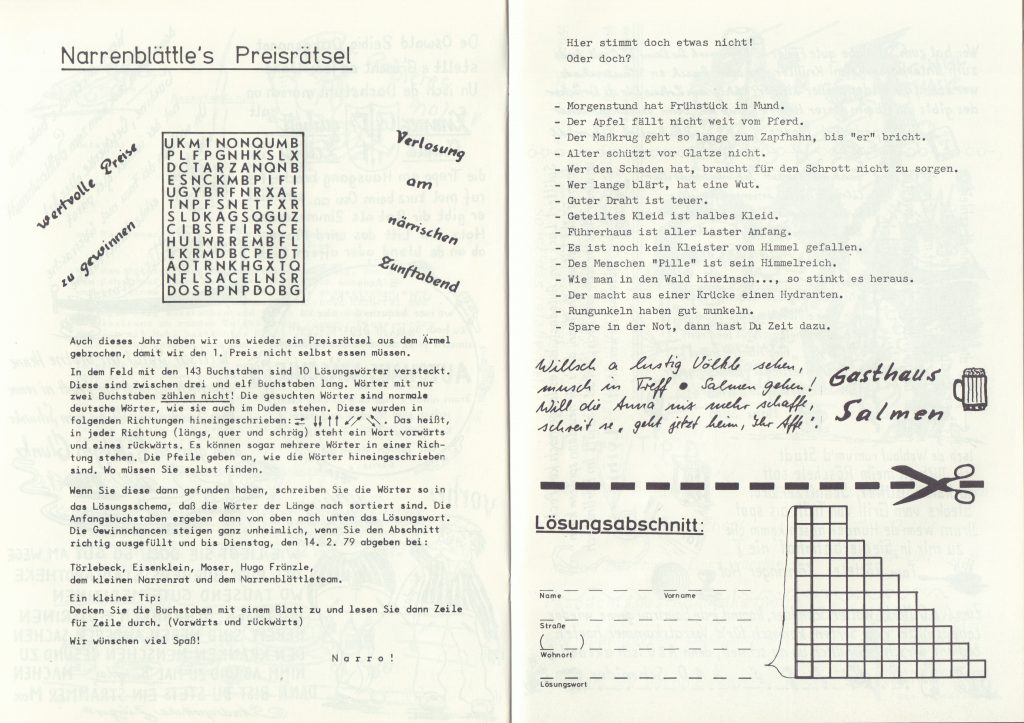 Narrenblättle's Preisrätsel
wertvolle Preise
zu gewinnen
UKMINONQUMB
PLFPGNHKSLX
DCTARZANQNB
ESNCKMBPIFI
UGYBRFNRXAE
TNPFSNETFXR
SLDKAGSQGUZ
CIBSEFIRSCE
HULWRREMBFL
LKRMDBCPEDT
AOTRNKHGXTQ
NFLSACELNSR
DOSBPNPDOBG
Verlosung
am
närrischen
Zunftabend
Auch dieses Jahr haben wir uns wieder ein Preisrätsel aus dem Ärmel
gebrochen, damit wir den 1. Preis nicht selbst essen müssen.
In dem Feld mit den 143 Buchstaben sind 10 Lösungswörter versteckt.
Diese sind zwischen drei und elf Buchstaben lang. Wörter mit nur
zwei Buchstaben zählen nicht! Die gesuchten Wörter sind normale
deutsche Wörter, wie sie auch im Duden stehen. Diese wurden in
folgenden Richtungen hineingeschrieben: ⇄ ↓↓ ↑↑ ↙↗ ↖↘. Das heißt,
in jeder Richtung (längs, quer und schräg) steht ein Wort vorwärts
und eines rückwärts. Es können sogar mehrere Wörter in einer Rich-
tung stehen. Die Pfeile geben an, wie die Wörter hineingeschrieben
sind. Wo müssen Sie selbst finden.
Wenn Sie diese dann gefunden haben, schreiben Sie die Wörter so in
das Lösungsschema, daß die Wörter der Länge nach sortiert sind. Die
Anfangsbuchstaben ergeben dann von oben nach unten das Lösungswort.
Die Gewinnchancen steigen ganz unheimlich, wenn Sie den Abschnitt
richtig ausgefüllt und bis Dienstag, den 14. 2. 79 abgeben bei:
Törlebeck, Eisenklein, Moser, Hugo Fränzle,
dem kleinen Narrenrat und dem Narrenblättleteam.
Ein kleiner Tip:
Decken Sie die Buchstaben mit einem Blatt zu und lesen Sie dann Zeile
für Zeile durch. (Vorwärts und rückwärts)
Wir wünschen viel Spaß!
N a r r o !
Hier stimmt doch etwas nicht!
Oder doch?
- Morgenstund hat Frühstück im Mund.
- Der Apfel fällt nicht weit vom Pferd.
- Der Maßkrug geht so lange zum Zapfhahn, bis "er" bricht.
- Alter schützt vor Glatze nicht.
- Wer den Schaden hat, braucht für den Schrott nicht zu sorgen.
- Wer lange blärt, hat eine Wut.
- Guter Draht ist teuer.
- Geteiltes Kleid ist halbes Kleid.
- Führerhaus ist aller Laster Anfang.
- Es ist noch kein Kleister vom Himmel gefallen.
- Des Menschen "Pille" ist sein Himmelreich.
- Wie man in den Wald hineinsch..., so stinkt es heraus.
- Der macht aus einer Krücke einen Hydranten.
- Rungunkeln haben gut munkeln.
- Spare in der Not, dann hast Du Zeit dazu.
Willsch a lustig Völkle sehen,
musch in Treff • Salmen gehen!
Will die Anna nix mehr schaffe,
schreit se, geht jetzt heim, Ihr Affe!
Gasthaus
Salmen
Lösungsabschnitt:
Name Vorname
Straße
( )
Wohnort
Lösungswort